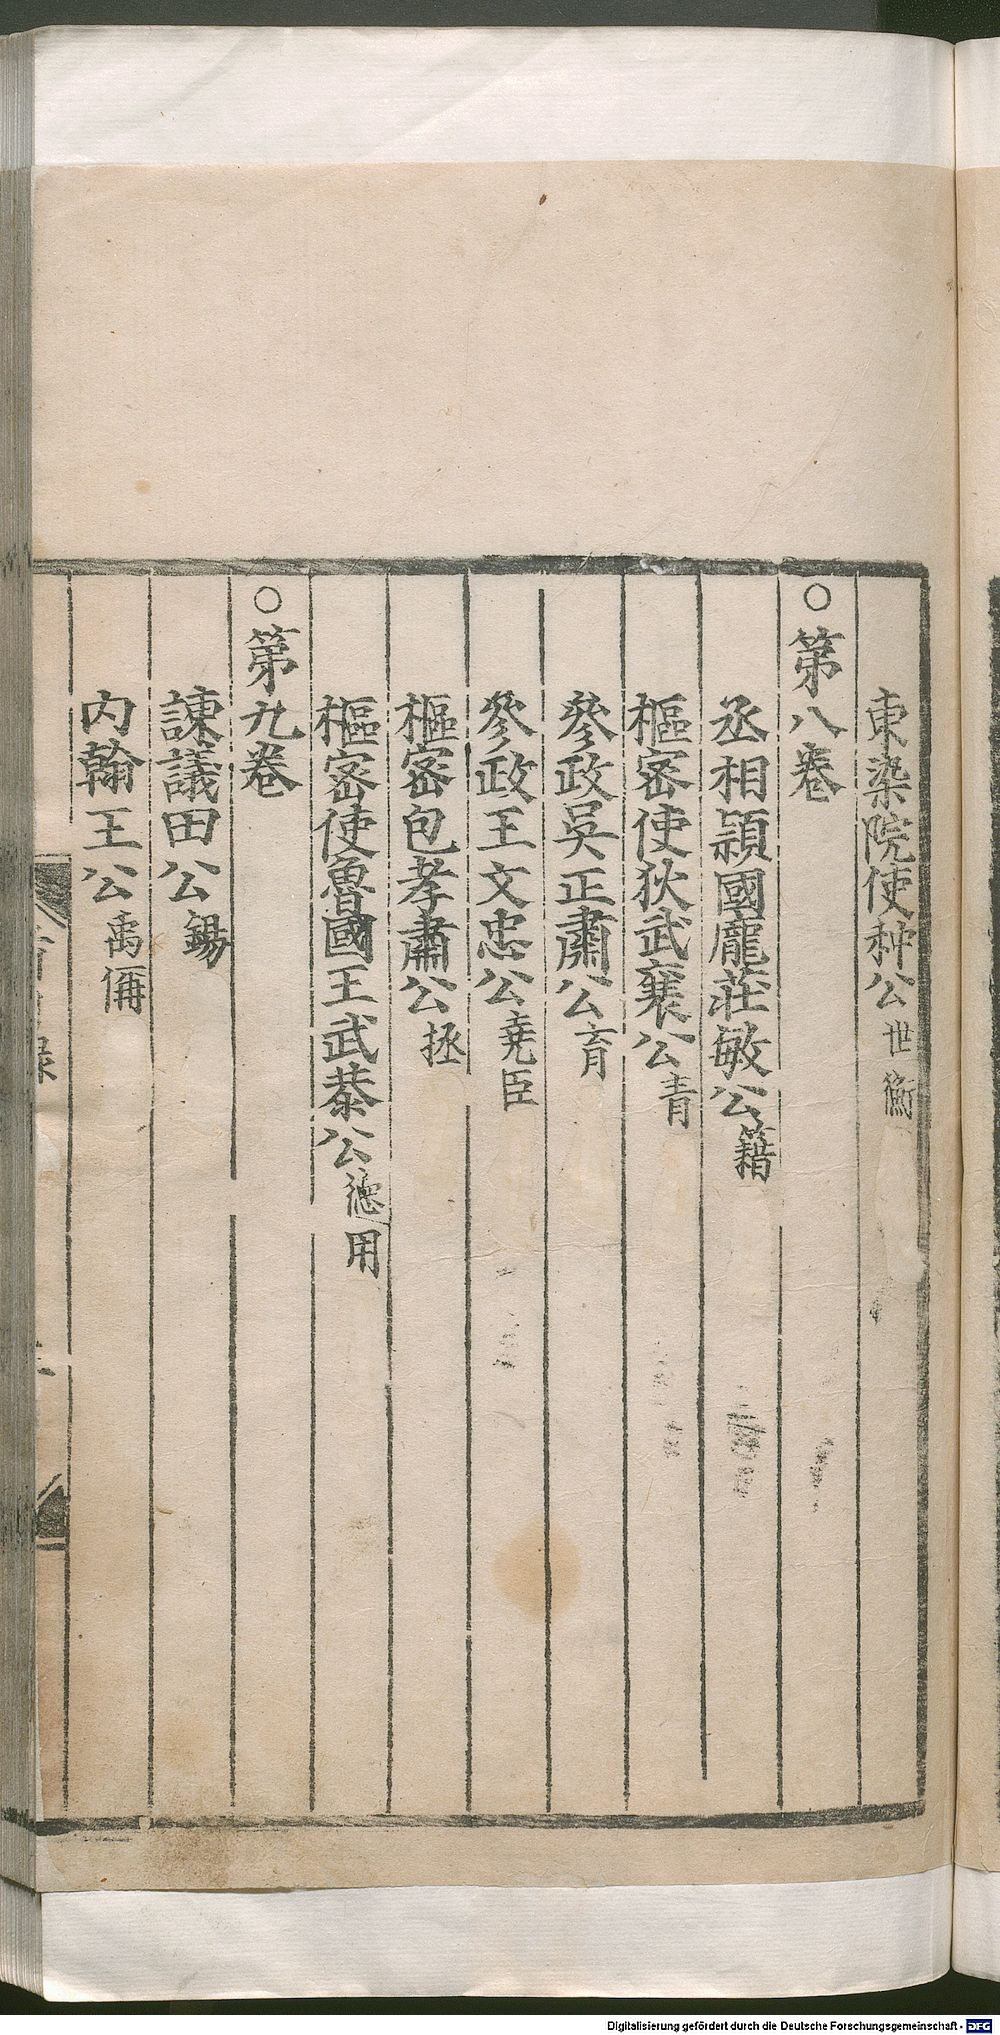 東染院使种公世衡
○第八卷
丞相頴國龐莊敏公籍
樞密使狄武襄公青
參政吳正肅公育
參政王文忠公堯臣
樞密包孝肅公拯
樞密使魯國王武恭公德用
○第九卷
諫議田公錫
内翰王公禹偁
Digitalisierung gefördert durch die Deutsche Forschungsgemeinschaft - DFG